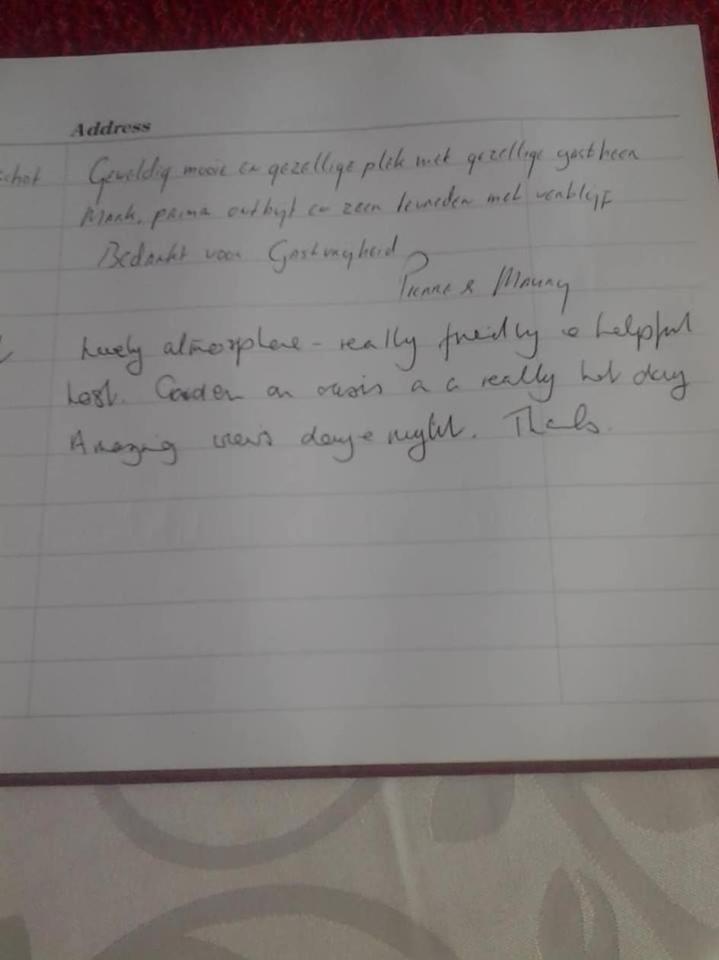 Address
schot Geweldig mooie en gezellige plek met gezellige gastheer
Mark, prima ontbijt en zeer tevreden met verblijf
Bedankt voor Gastvrijheid
Pierre & Mauny
Lovely atmosphere - really friendly & helpful
host. Garden an oasis on a really hot day
Amazing views day & night. Thanks.